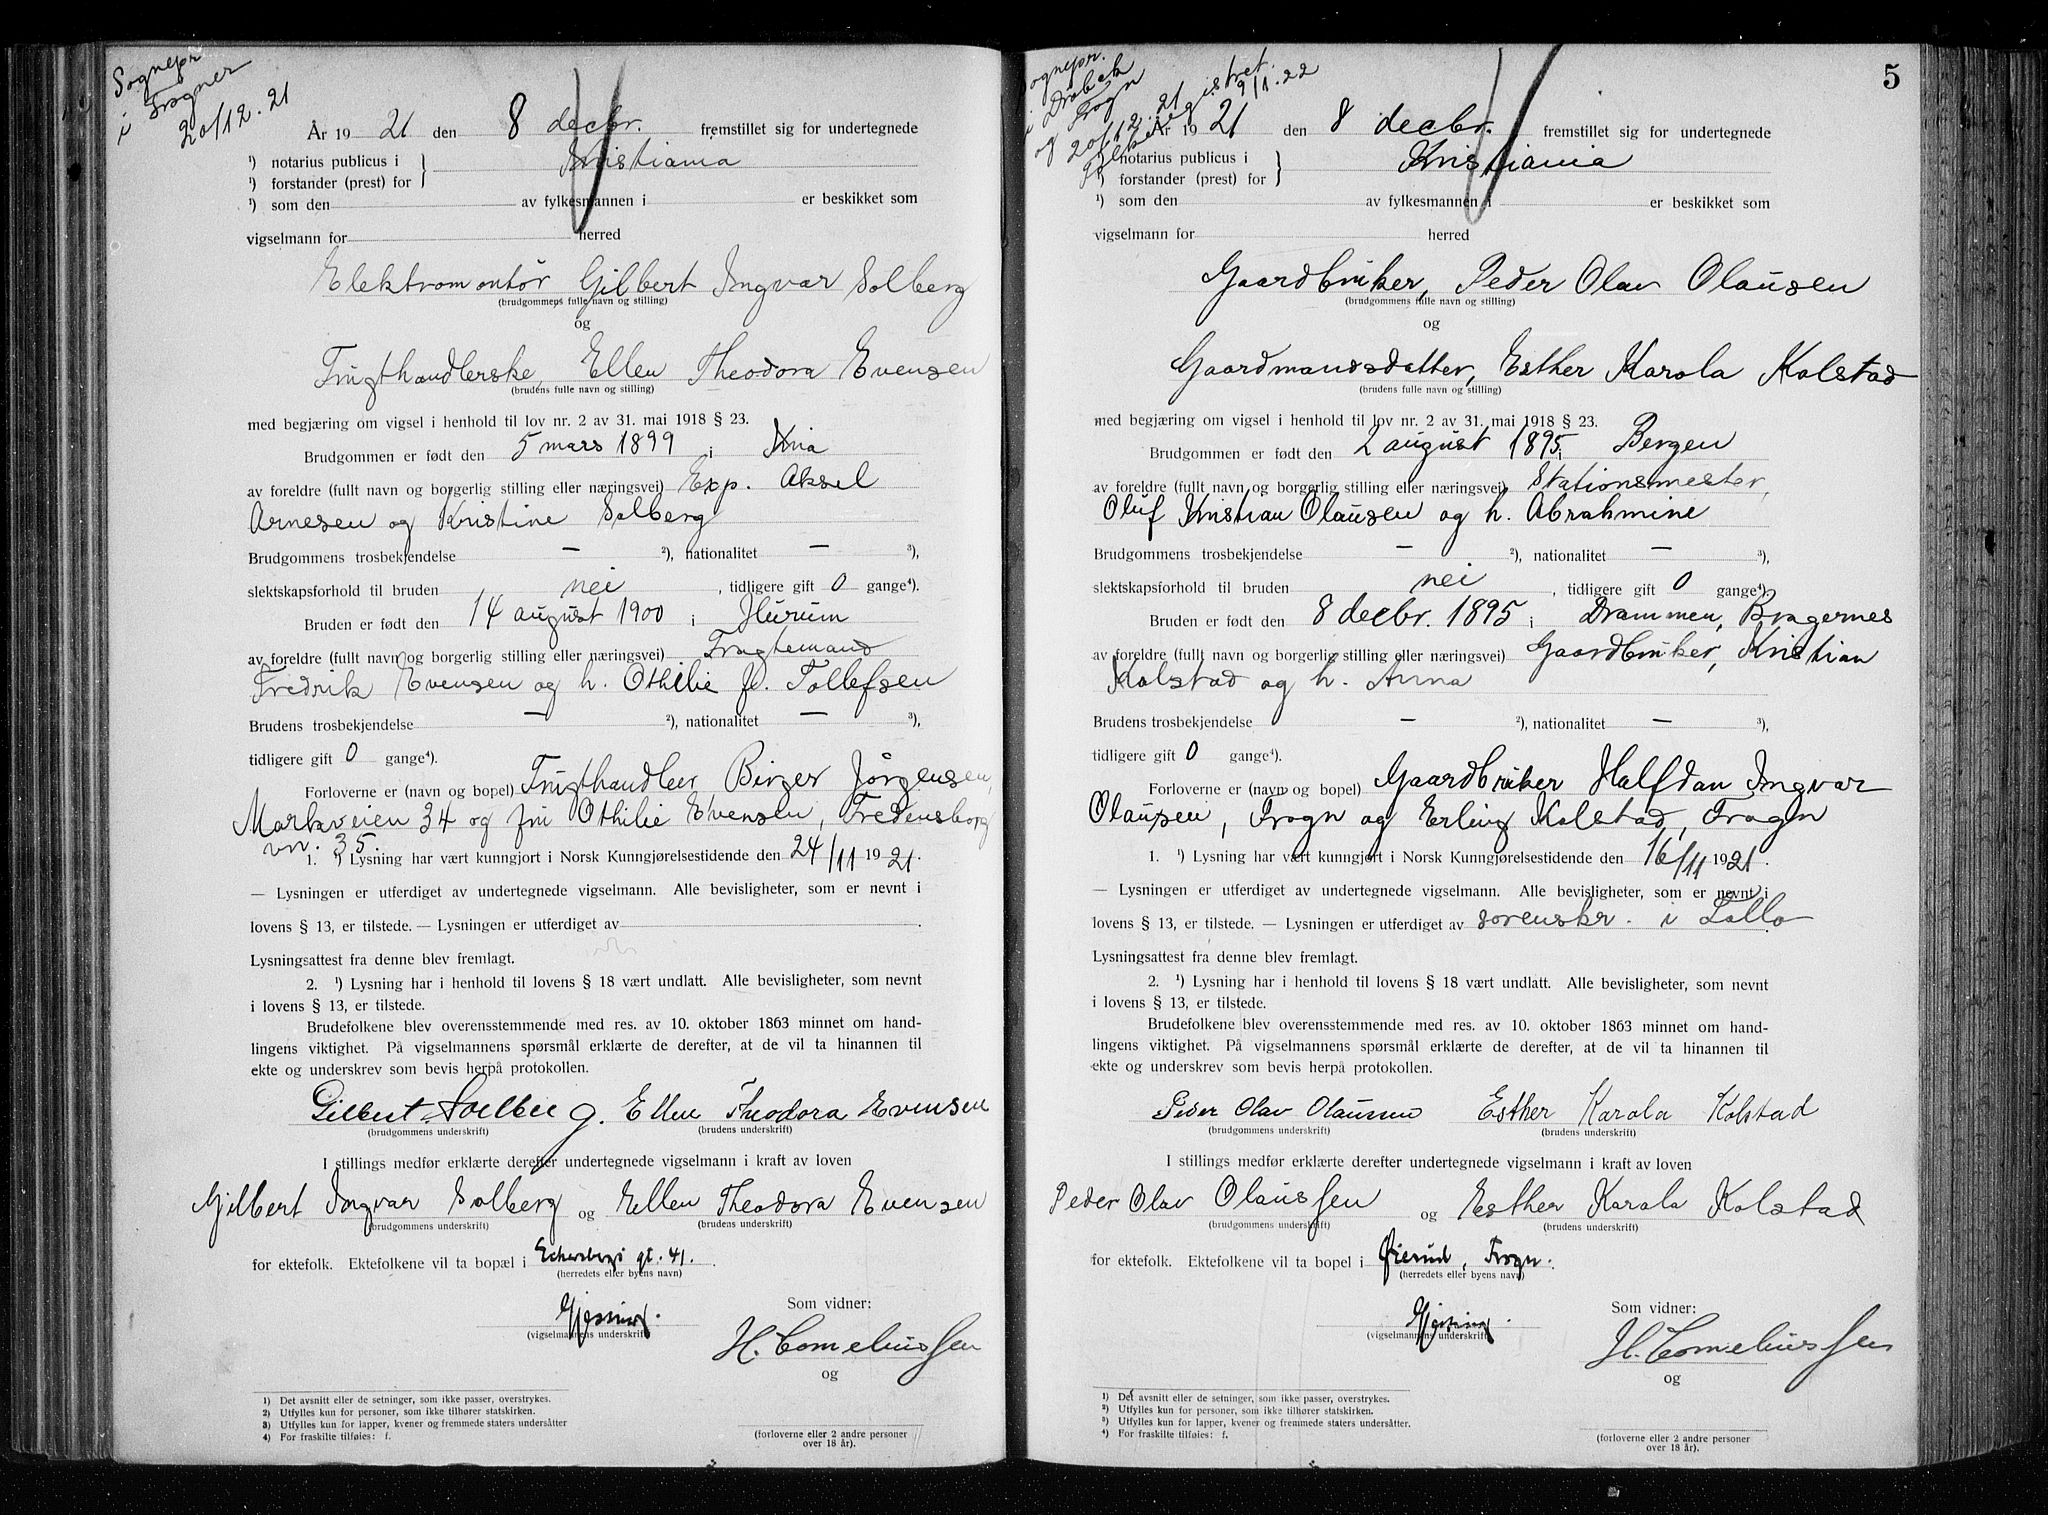 Sognepr
i Frogner
20/12.21
År 1921 den 8 decbr. fremstillet sig for undertegnede
¹) notarius publicus i } Kristiania
¹) forstander (prest) for
¹) som den av fylkesmannen i er beskikket som
vigselmann for herred
Elektromontör Gilbert Ingvar Solberg
(brudgommens fulle navn og stilling)
og
Frugthandlerske, Ellen Theodora Evensen
(brudens fulle navn og stilling)
med begjæring om vigsel i henhold til lov nr. 2 av 31. mai 1918 § 23.
Brudgommen er født den 5 mars 1899 i Kria
av foreldre (fullt navn og borgerlig stilling eller næringsvei) Exp. Aksel
Arnesen og Kristine Solberg
Brudgommens trosbekjendelse — ²), nationalitet — ³),
slektskapsforhold til bruden nei , tidligere gift 0 gange⁴).
Bruden er født den 14 august 1900 i Hurum
av foreldre (fullt navn og borgerlig stilling eller næringsvei) Fragtemand
Fredrik Evensen og h. Othilie f. Tollefsen
Brudens trosbekjendelse — ²), nationalitet — ³),
tidligere gift 0 gange⁴).
Forloverne er (navn og bopel) Frugthandler Birger Jörgensen,
Markveien 34 og fru Othilie Evensen, Fredensborg
vn. 35.
1. ¹) Lysning har vært kunngjort i Norsk Kunngjørelsestidende den 24/11 1921.
— Lysningen er utferdiget av undertegnede vigselmann. Alle bevisligheter, som er nevnt i
lovens § 13, er tilstede. — Lysningen er utferdiget av
Lysningsattest fra denne blev fremlagt.
2. ¹) Lysning har i henhold til lovens § 18 vært undlatt. Alle bevisligheter, som nevnt
i lovens § 13, er tilstede.
Brudefolkene blev overensstemmende med res. av 10. oktober 1863 minnet om hand-
lingens viktighet. På vigselmannens spørsmål erklærte de derefter, at de vil ta hinannen til
ekte og underskrev som bevis herpå protokollen.
Gilbert Solberg. Ellen Theodora Evensen
(brudgommens underskrift) (brudens underskrift)
I stillings medfør erklærte derefter undertegnede vigselmann i kraft av loven
Gilbert Ingvar Solberg og Ellen Theodora Evensen
(brudgommens underskrift) (brudens underskrift)
for ektefolk. Ektefolkene vil ta bopæl i Eckersbergs gt. 41.
(herredets eller byens navn)
Som vidner:
(vigselmannens underskrift)
H. Corneliussen
og
¹) Det avsnitt eller de setninger, som ikke passer, overstrykes.
²) Utfylles kun for personer, som ikke tilhører statskirken.
³) Utfylles kun for lapper, kvener og fremmede staters undersåtter
⁴) For fraskilte tilføies: f.
(forloverne eller 2 andre personer
over 18 år).
5
Sognepr.
i Dröbak
og Frogn
20/12.21
Folkeregistret
9/1.22
År 1921 den 8 decbr. fremstillet sig for undertegnede
¹) notarius publicus i } Kristiania
¹) forstander (prest) for
¹) som den av fylkesmannen i er beskikket som
vigselmann for herred
Gaardbruker, Peder Olav Olausen
(brudgommens fulle navn og stilling)
og
Gaardmandsdatter, Esther Karola Kolstad
(brudens fulle navn og stilling)
med begjæring om vigsel i henhold til lov nr. 2 av 31. mai 1918 § 23.
Brudgommen er født den 2 august 1895 i Bergen
av foreldre (fullt navn og borgerlig stilling eller næringsvei) Stationsmester,
Oluf Kristian Olausen og h. Abrahmine
Brudgommens trosbekjendelse — ²), nationalitet — ³),
slektskapsforhold til bruden nei , tidligere gift 0 gange⁴).
Bruden er født den 8 decbr. 1895 i Drammen, Bragernes
av foreldre (fullt navn og borgerlig stilling eller næringsvei) Gaardbruker, Kristian
Kolstad og h. Anna
Brudens trosbekjendelse — ²), nationalitet — ³),
tidligere gift 0 gange⁴).
Forloverne er (navn og bopel) Gaardbruker Halfdan Ingvar
Olausen, Frogn og Erling Kolstad, Frogn
1. ¹) Lysning har vært kunngjort i Norsk Kunngjørelsestidende den 16/11 1921.
— Lysningen er utferdiget av undertegnede vigselmann. Alle bevisligheter, som er nevnt i
lovens § 13, er tilstede. — Lysningen er utferdiget av sorenskr. i Follo
Lysningsattest fra denne blev fremlagt.
2. ¹) Lysning har i henhold til lovens § 18 vært undlatt. Alle bevisligheter, som nevnt
i lovens § 13, er tilstede.
Brudefolkene blev overensstemmende med res. av 10. oktober 1863 minnet om hand-
lingens viktighet. På vigselmannens spørsmål erklærte de derefter, at de vil ta hinannen til
ekte og underskrev som bevis herpå protokollen.
Peder Olav Olaussen Esther Karola Kolstad
(brudgommens underskrift) (brudens underskrift)
I stillings medfør erklærte derefter undertegnede vigselmann i kraft av loven
Peder Olav Olaussen og Esther Karola Kolstad
(brudgommens underskrift) (brudens underskrift)
for ektefolk. Ektefolkene vil ta bopel i Øierud, Frogn.
(herredets eller byens navn)
Som vidner:
(vigselmannens underskrift)
H. Corneliussen
og
¹) Det avsnitt eller de setninger, som ikke passer, overstrykes.
²) Utfylles kun for personer, som ikke tilhører statskirken.
³) Utfylles kun for lapper, kvener og fremmede staters undersåtter.
⁴) For fraskilte tilføies: f.
(forloverne eller 2 andre personer
over 18 år).